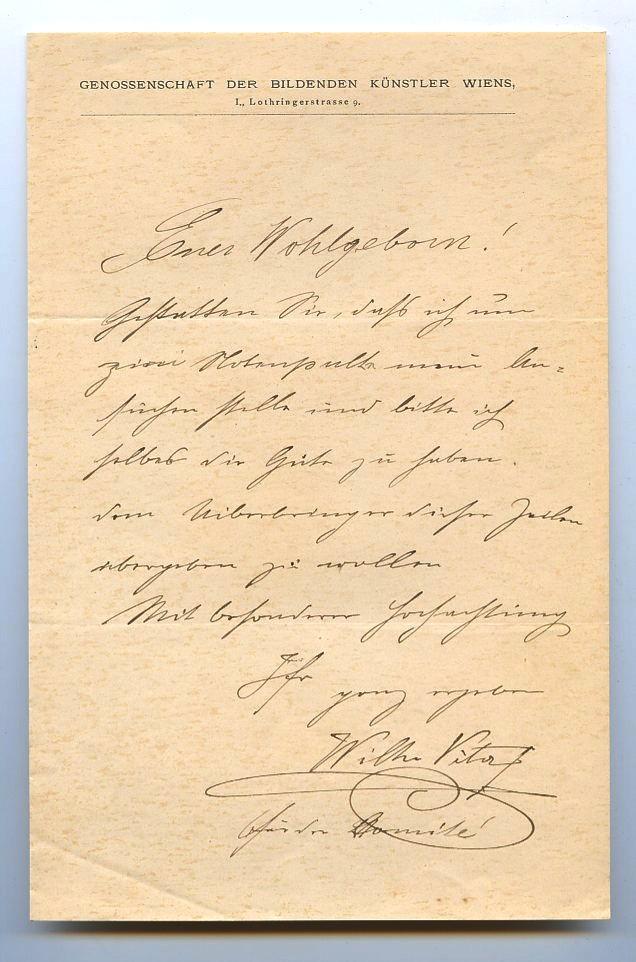 GENOSSENSCHAFT DER BILDENDEN KÜNSTLER WIENS,
I., Lothringerstrasse 9.
Euer Wohlgeboren!
Gestatten Sie, daß ich um
zwei Notenpulte mein An=
suchen stelle und bitte ich
selbes die Güte zu haben.
dem Ueberbringer dieser Zeilen
übergeben zu wollen
Mit besonderer Hochachtung
Ihr
ganz ergeben
Wilh Vita
Für das Comité